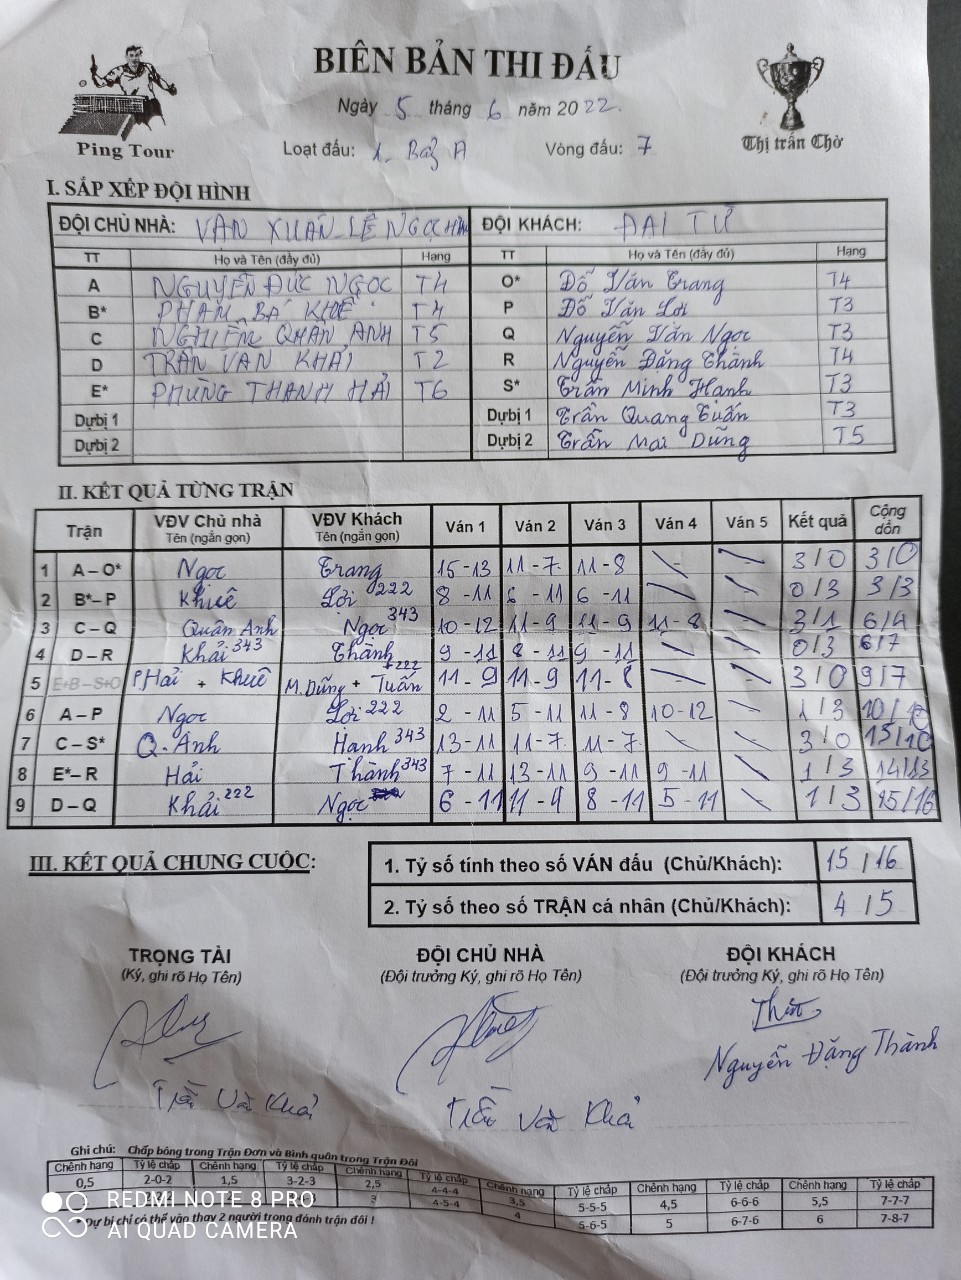 BIÊN BẢN THI ĐẤU
Ngày 5 tháng 6 năm 2022.
Ping Tour
Loạt đấu: 1. Bảng A Vòng đấu: 7
Thị trấn Chờ
I. SẮP XẾP ĐỘI HÌNH
ĐỘI CHỦ NHÀ: VẠN XUÂN - LÊ NGỌC HÂN ĐỘI KHÁCH: ĐẠI TỪ
TT Họ và Tên (đầy đủ) Hạng TT Họ và Tên (đầy đủ) Hạng
A NGUYỄN ĐỨC NGỌC T4 O* Đỗ Văn Trang T4
B* PHẠM BÁ KHUÊ T4 P Đỗ Văn Lợi T3
C NGHIÊM QUÂN ANH T5 Q Nguyễn Văn Ngọc T3
D TRẦN VĂN KHẢI T2 R Nguyễn Đăng Thành T4
E* PHÙNG THANH HẢI T6 S* Trần Minh Hạnh T3
Dựbị 1 Dựbị 1 Trần Quang Tuấn T3
Dựbị 2 Dựbị 2 Trần Mai Dũng T5
II. KẾT QUẢ TỪNG TRẬN
Trận VĐV Chủ nhà Tên (ngắn gọn) VĐV Khách Tên (ngắn gọn) Ván 1 Ván 2 Ván 3 Ván 4 Ván 5 Kết quả Cộng dồn
1 A – O* Ngọc Trang 15-13 11-7 11-8 3/0 3/0
2 B* – P Khuê Lợi 222 8-11 6-11 6-11 0/3 3/3
3 C – Q Quân Anh Ngọc 343 10-12 11-9 11-9 11-8 3/1 6/4
4 D – R Khải 343 Thành 9-11 8-11 9-11 0/3 6/7
5 E+B – S+O P.Hải + Khuê M.Dũng + Tuấn +222 11-9 11-9 11-8 3/0 9/7
6 A – P Ngọc Lợi 222 2-11 5-11 11-8 10-12 1/3 10/10
7 C – S* Q.Anh Hạnh 343 13-11 11-7 11-7 3/0 13/10
8 E* – R Hải Thành 343 7-11 13-11 9-11 9-11 1/3 14/13
9 D – Q Khải 222 Ngọc 6-11 11-4 8-11 5-11 1/3 15/16
III. KẾT QUẢ CHUNG CUỘC:
1. Tỷ số tính theo số VÁN đấu (Chủ/Khách): 15/16
2. Tỷ số theo số TRẬN cá nhân (Chủ/Khách): 4/5
TRỌNG TÀI ĐỘI CHỦ NHÀ ĐỘI KHÁCH
(Ký, ghi rõ Họ Tên) (Đội trưởng Ký, ghi rõ Họ Tên) (Đội trưởng Ký, ghi rõ Họ Tên)
Nguyễn Đăng Thành
Trần Văn Khải Trần Văn Khải
Ghi chú: Chấp bóng trong Trận Đơn và Bình quân trong Trận Đôi
Chênh hạng Tỷ lệ chấp Chênh hạng Tỷ lệ chấp Chênh hạng Tỷ lệ chấp Chênh hạng Tỷ lệ chấp Chênh hạng Tỷ lệ chấp Chênh hạng Tỷ lệ chấp
0,5 2-0-2 1,5 3-2-3 2,5 4-4-4 3,5 5-5-5 4,5 6-6-6 5,5 7-7-7
3 4-5-4 4 5-6-5 5 6-7-6 6 7-8-7
Dự bị chỉ có thể vào thay 2 người trong đánh trận đôi !
REDMI NOTE 8 PRO
AI QUAD CAMERA